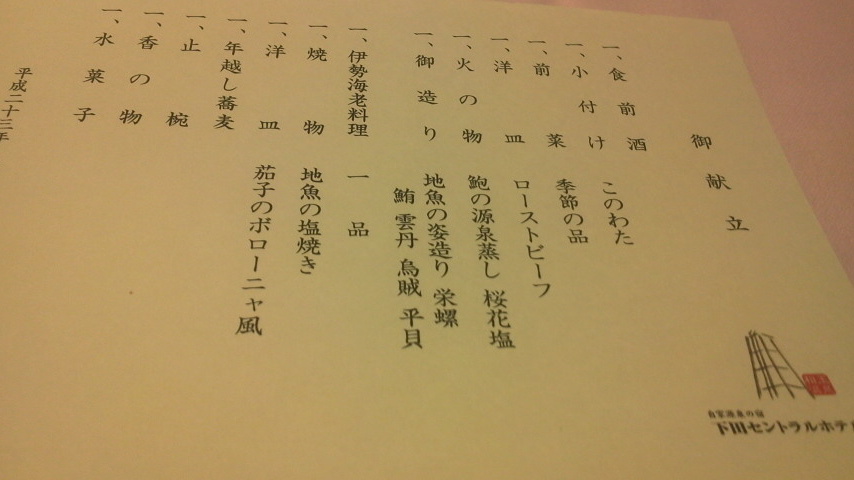 御献立
一、食前酒
一、小付け このわた
一、前菜 季節の品
一、洋皿 ローストビーフ
一、火の物 鮑の源泉蒸し 桜花塩
一、御造り 地魚の姿造り 栄螺
鮪 雲丹 烏賊 平貝
一、伊勢海老料理 一品
一、焼物 地魚の塩焼き
一、洋皿 茄子のボローニャ風
一、年越し蕎麦
一、止椀
一、香の物
一、水菓子
平成二十三年
自家源泉の宿
下田セントラルホテ